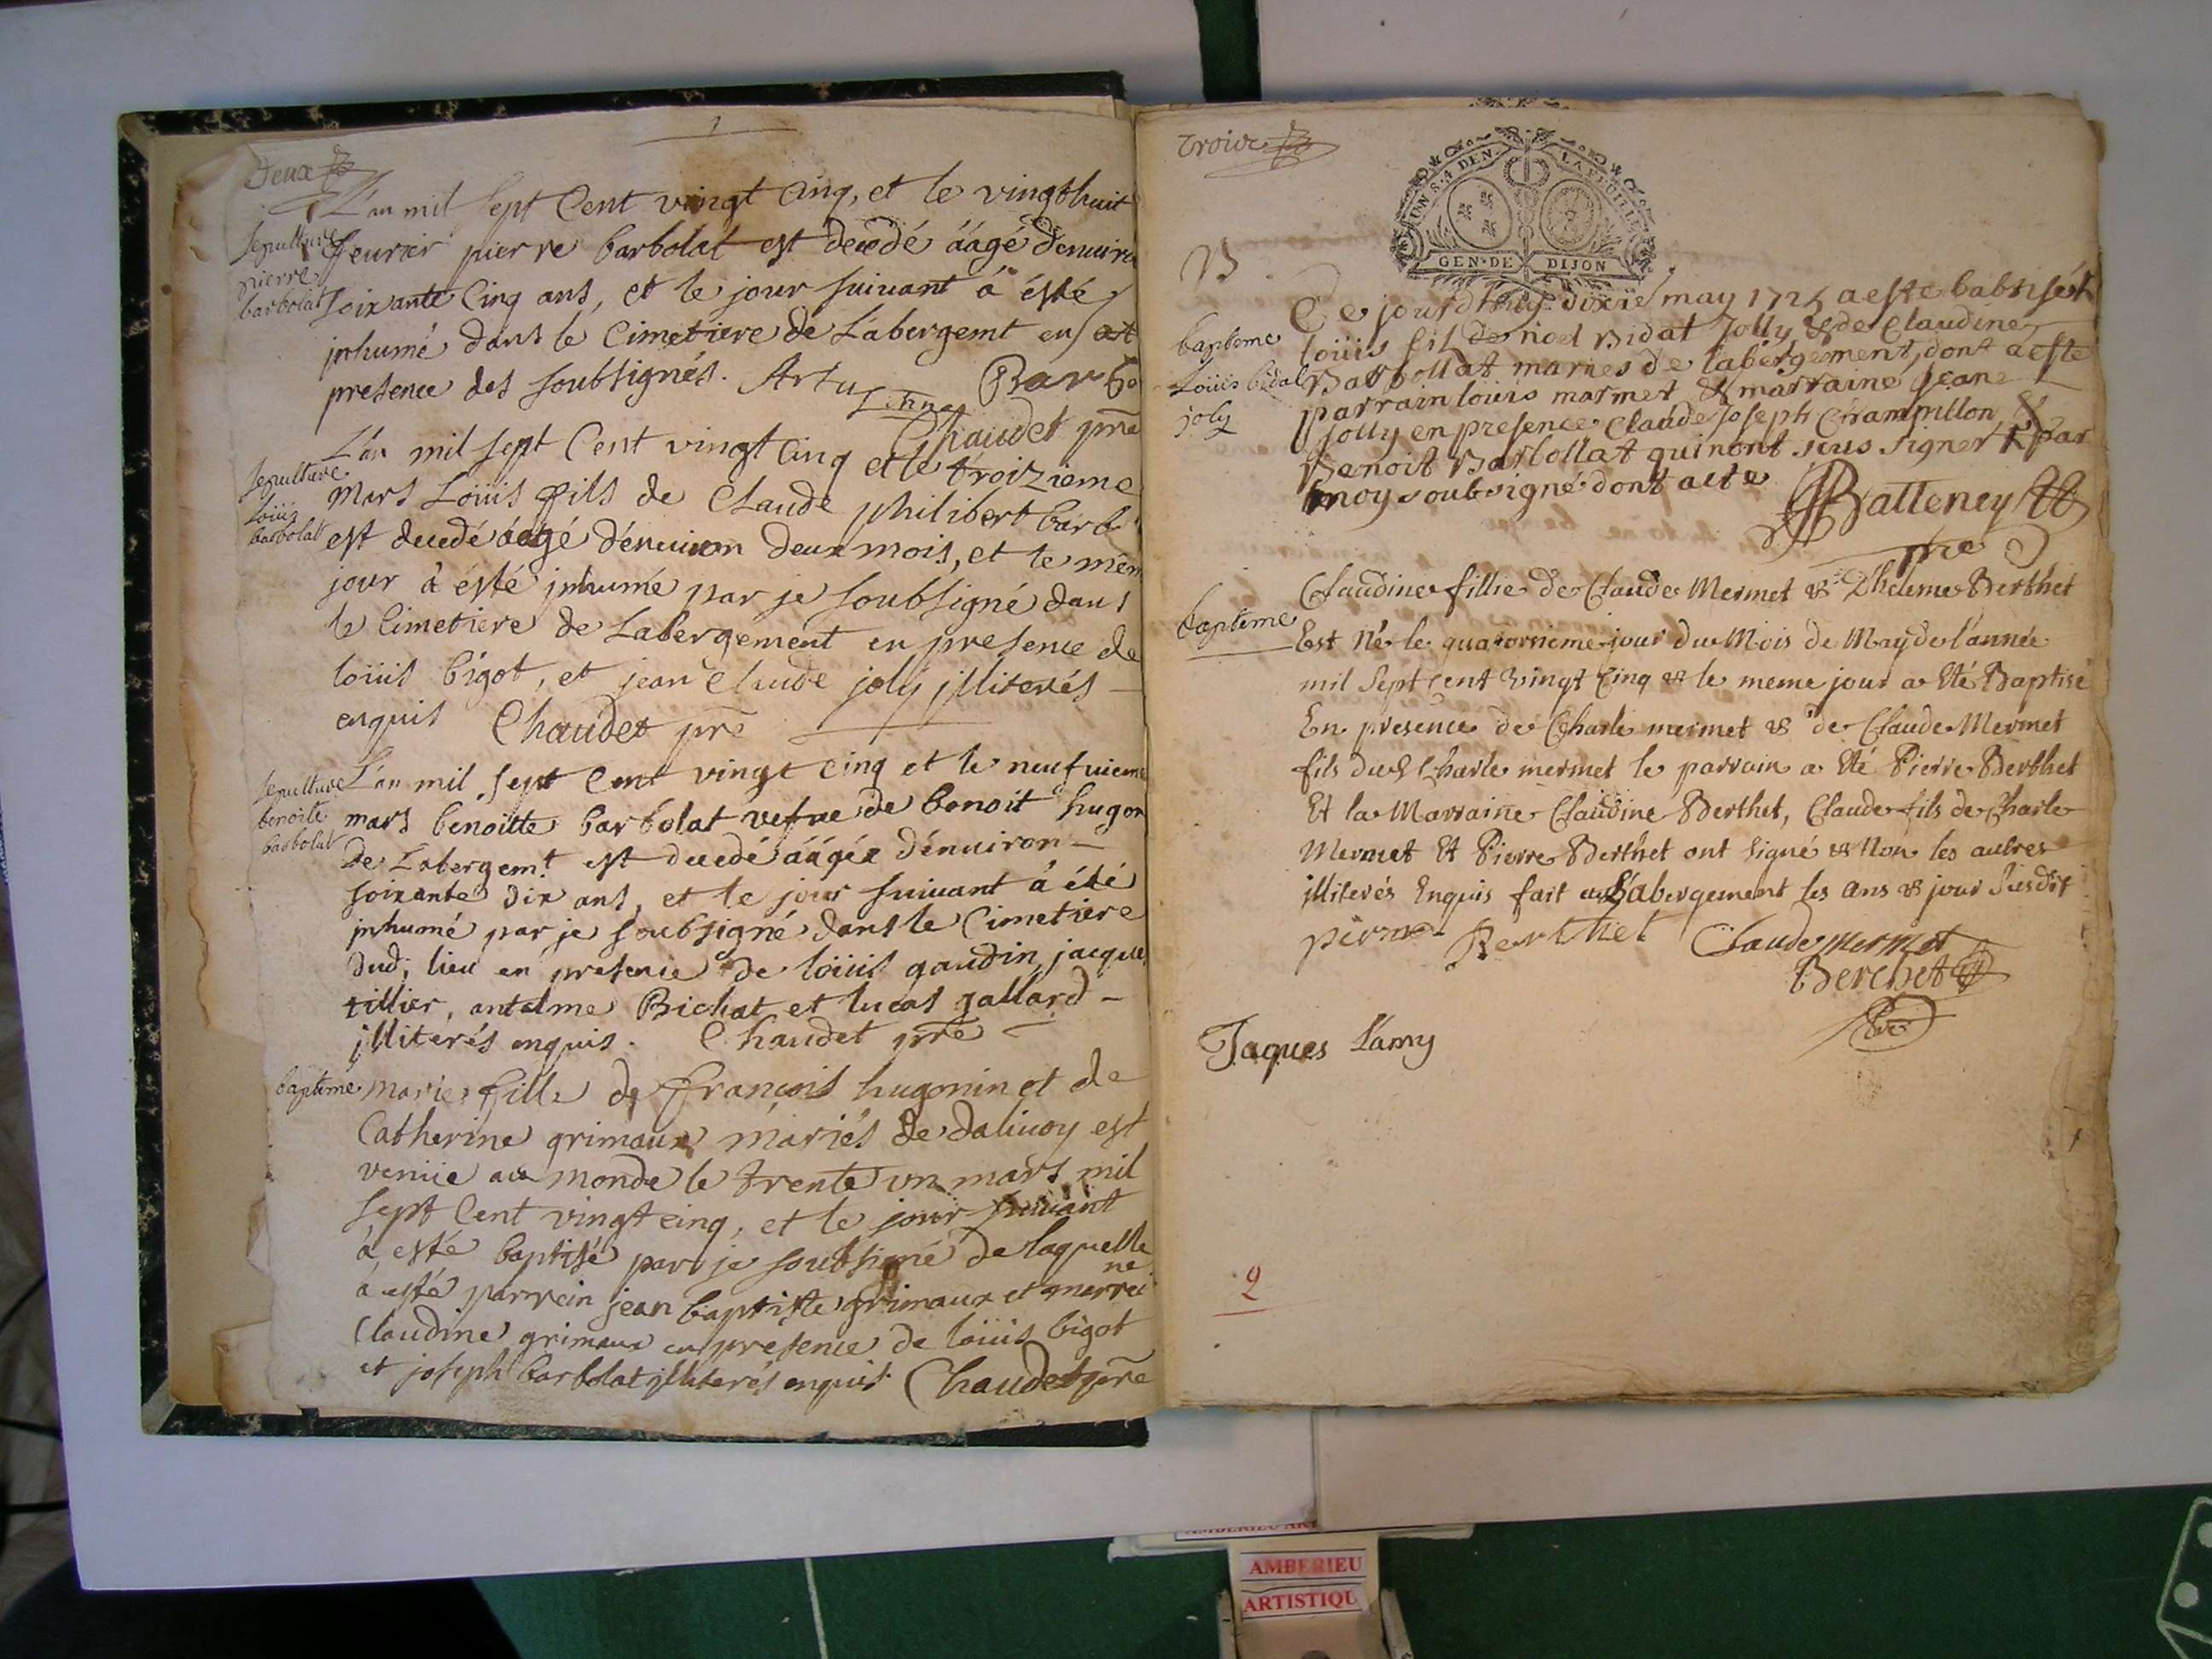 1
Deux
L'an mil sept Cent vingt Cinq, et le vingthuit
sepulture
pierre
barbolat
feurier pierre barbolat est decedé áagé denuiro
soixante Cinq ans, et le jour suiuant á esté
jnhumé dans le Cimetiere de Labergemt en
presence des soubsignés. Artus Barbo
Chaudet pre
sepulture
Loüis
barbolat
L'an mil sept Cent vingt Cinq et le troizieme
Mars Loüis fils de Claude philibert barb
est decedé áagé dénuiron deux mois, et le mem
jour à ésté jnhumé par je soubsigné dans
le Cimetiere de Labergement en presence de
loüis bigot, et jean Claude joly jlliterés
enquis Chaudet pre
sepulture
benoite
barbolat
L'an mil sept Cent vingt cinq et le neufuieme
mars benoitte barbolat vefue de benoit hugon
de Labergemt est decedé áágée dénuiron
soixante dix ans, et le jour suiuant á été
jnhumé par je soubsigné dans le Cimetiere
dud, lieu en presence de loüis gaudin, jacque
tillier, antelme Bichat et lucas gallard
jlliterés enquis. Chaudet pre
baptéme
marie fille de françois hugonin et de
Catherine grimaux mariés de dalivoy est
venüe au monde le trente un mars mil
sept Cent vingt cinq, et le jour suiuant
á esté baptisé par je soubsigné de laquelle
á esté parrein jean baptiste grimaux et merrei
ne
Claudine grimaux en presence de loüis bigot
et joseph barbolat jlliterés enquis Chaudet pre
troix
UN S. 4 DEN. LA FEUILLE
GEN. DE DIJON
B
Ce jourdhuy dixie may 1725 a este babtisét
bapteme
Loüis bidal
joly
loüis fil de noel Bidat Jolly & de Claudine
Barbollat maries de labergement, dont a este
parrain louis marmet & marraine Jeane
Jolly en presence Claude Joseph Chrampillon &
Benoit Barbollat quinont sceus signer par
moy soubsigné dont acte Batteney
pre
bapteme
Claudine fillie de Claude Mermet & Berthet
Est Né le quatorsieme jour du Mois de May de l'année
mil Sept Cent Vingt Cinq & le meme jour a Eté Baptisé
En presence de Charle mermet & de Claude Mermet
fils dud Charle mermet le parrain a Eté Pierre Berthet
Et la Marraine Claudine Berthet, Claude fils de Charle
Mermet Et Pierre Berthet ont signé & Non les autres
jlliterés Enquis fait a Labergement les ans & jour Susdit
pierre Berthet Claude mermet
Berchet
Jaques Lamy
2
AMBERIEU
ARTISTIQU